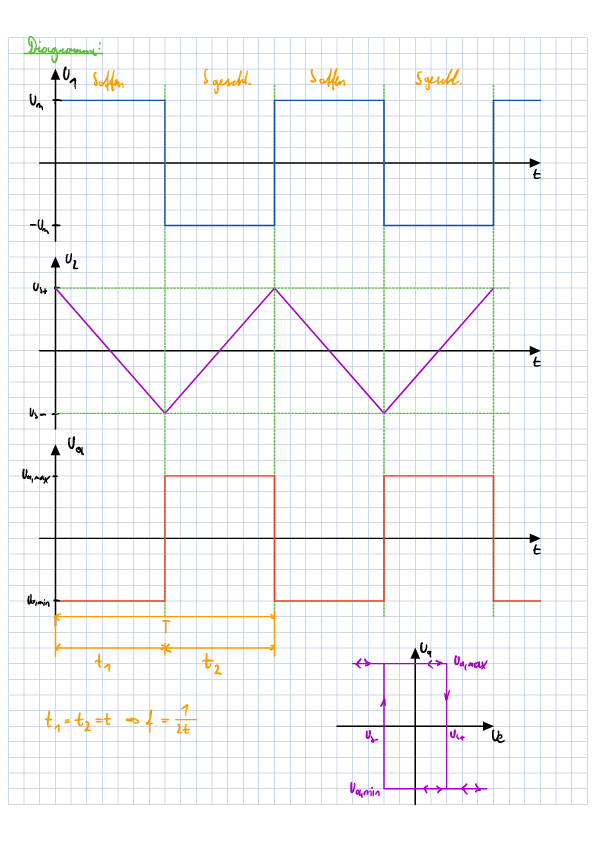 Diagramme:
U1
S offen S geschl. S offen S geschl.
Um
t
-Um
U2
Us+
t
Us-
Ua
Ua,max
t
Ua,min
T
t1 t2
t1 = t2 = t ⇒ f = 1/2t
Ua
Ua,max
Us- Us+ Ue
Ua,min